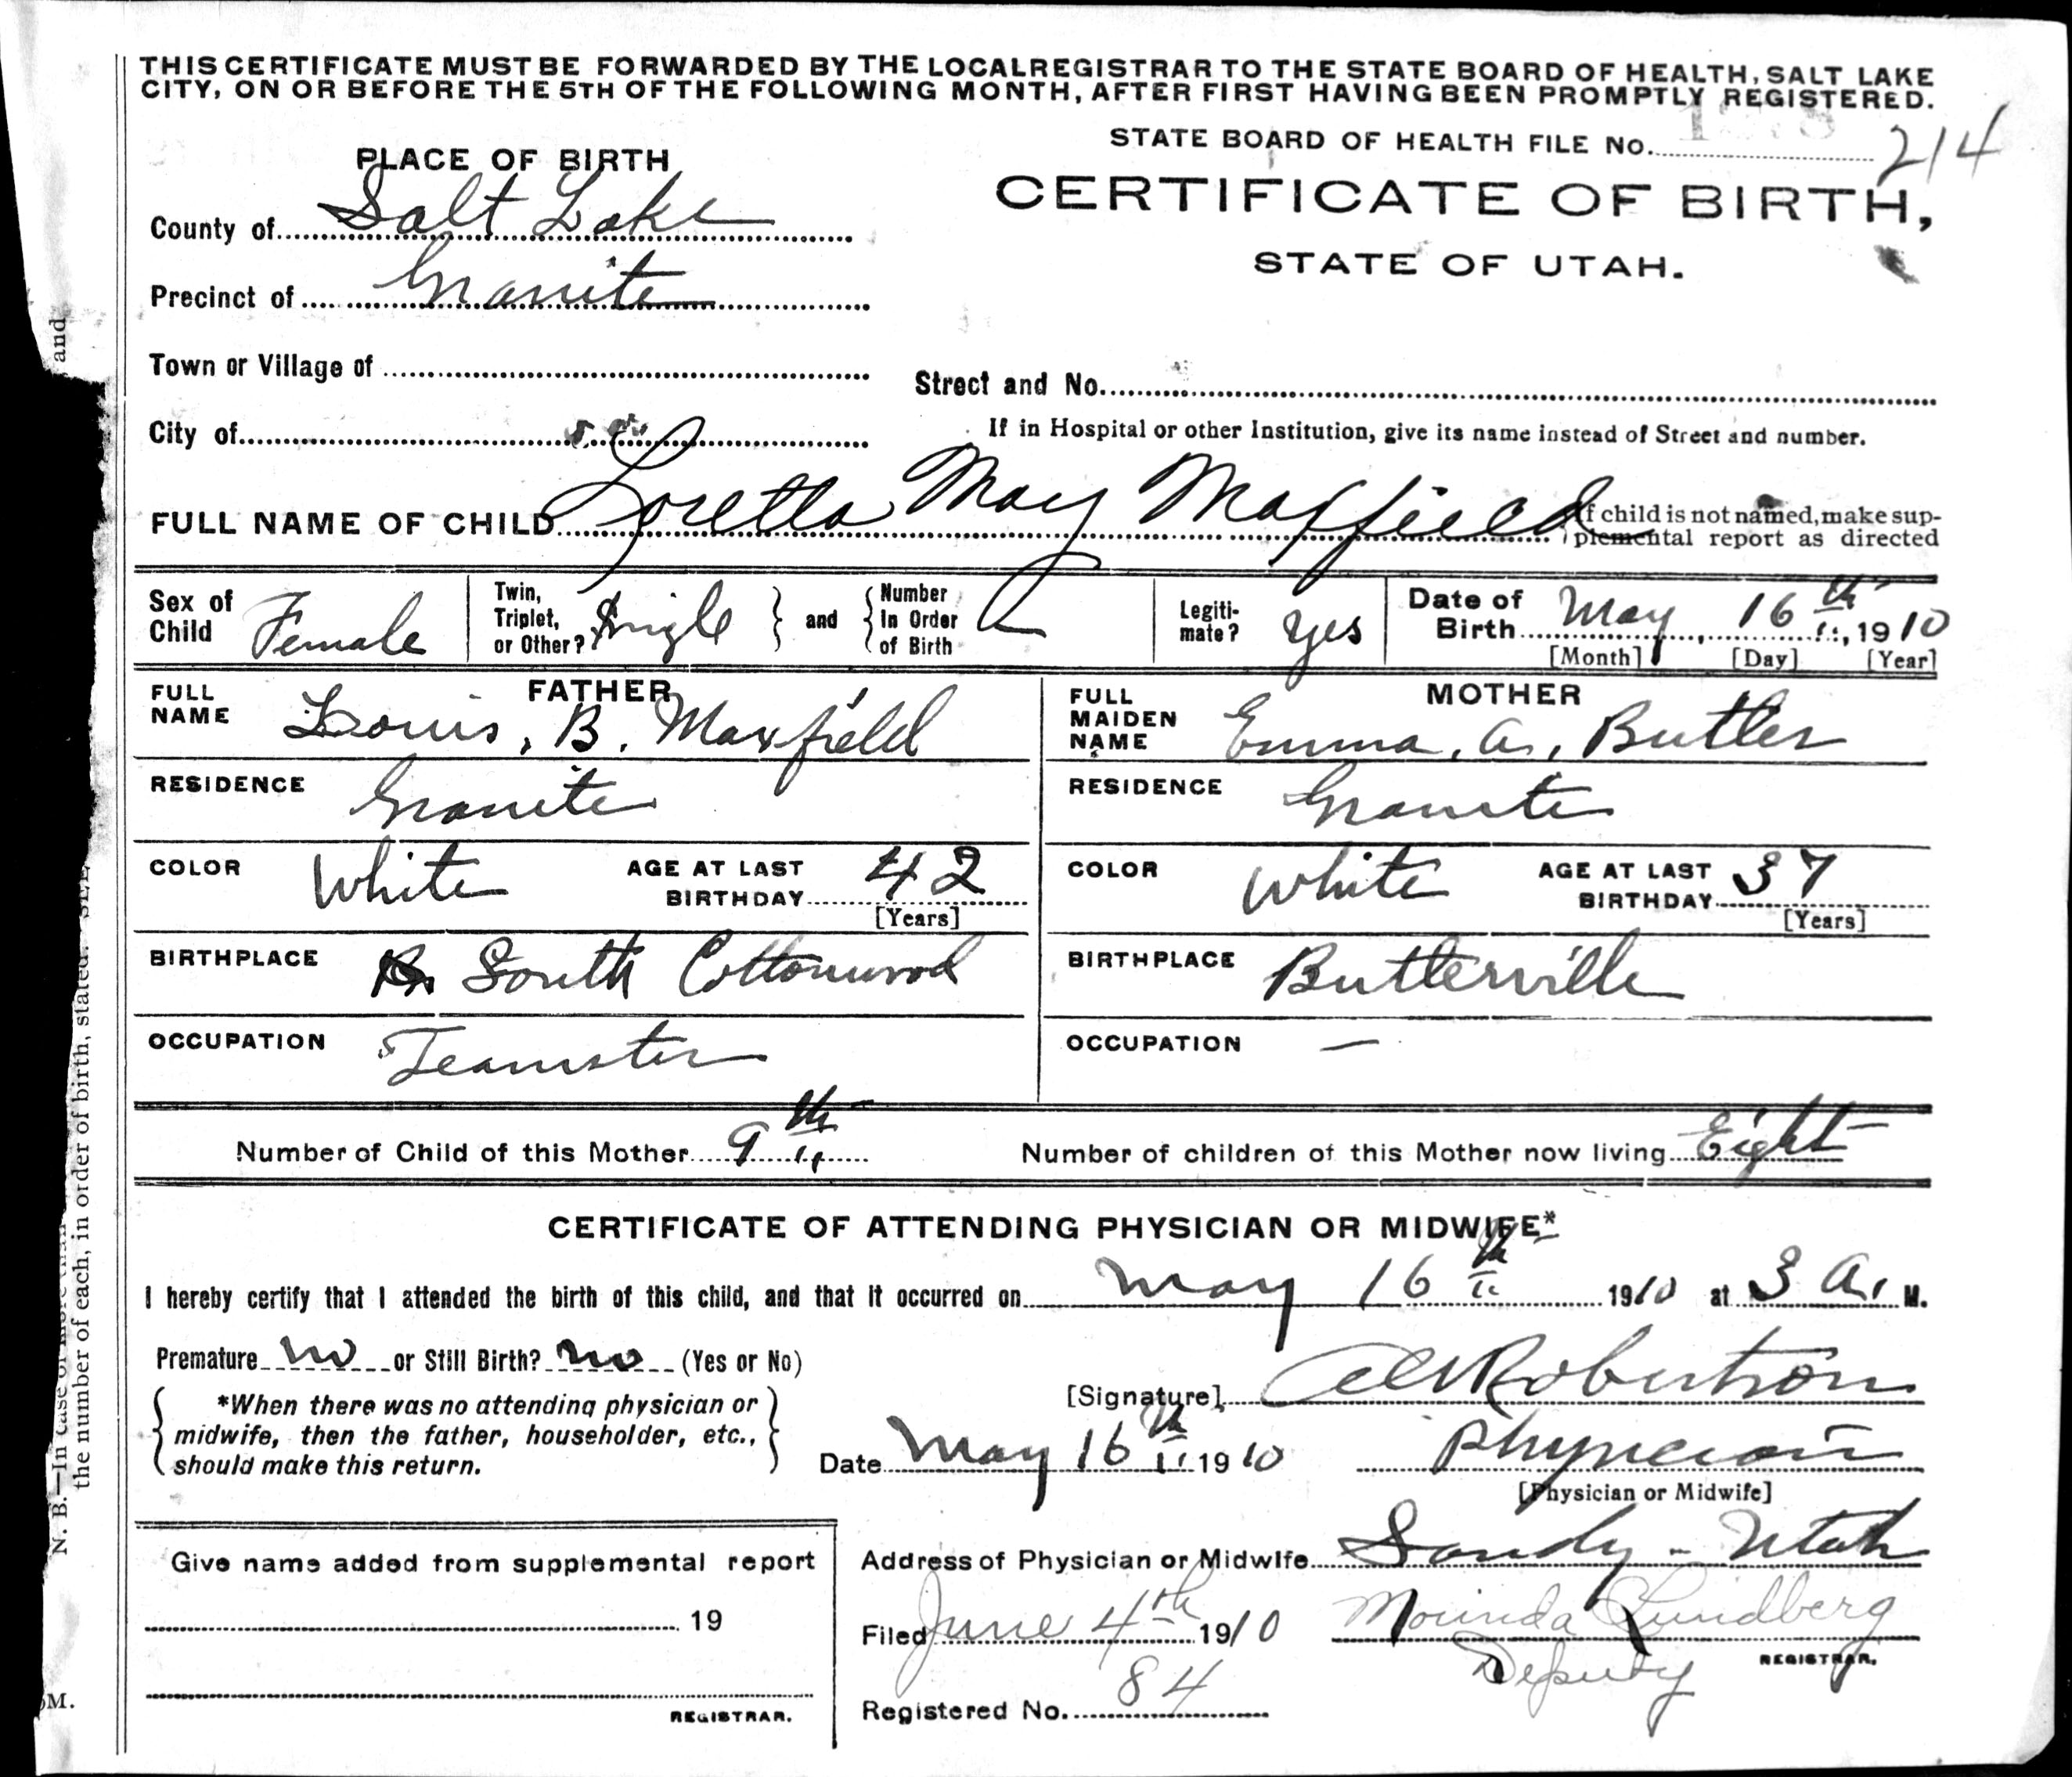 THIS CERTIFICATE MUST BE FORWARDED BY THE LOCAL REGISTRAR TO THE STATE BOARD OF HEALTH, SALT LAKE
CITY, ON OR BEFORE THE 5TH OF THE FOLLOWING MONTH, AFTER FIRST HAVING BEEN PROMPTLY REGISTERED.
STATE BOARD OF HEALTH FILE No. 214
PLACE OF BIRTH
CERTIFICATE OF BIRTH,
STATE OF UTAH.
County of Salt Lake
Precinct of Granite
Town or Village of
Street and No.
City of
If in Hospital or other Institution, give its name instead of Street and number.
FULL NAME OF CHILD Loretta May Maxfield
If child is not named, make sup-
plemental report as directed
Sex of Child Female
Twin, Triplet, or Other? Single } and { Number In Order of Birth
Legiti-mate? yes
Date of Birth May 16th, 1910
[Month] [Day] [Year]
FATHER
FULL NAME Louis, B. Maxfield
RESIDENCE Granite
COLOR White AGE AT LAST BIRTHDAY 42
[Years]
BIRTHPLACE South Cottonwood
OCCUPATION Teamster
MOTHER
FULL MAIDEN NAME Emma, A., Butler
RESIDENCE Granite
COLOR White AGE AT LAST BIRTHDAY 37
[Years]
BIRTHPLACE Butlerville
OCCUPATION —
Number of Child of this Mother 9th
Number of children of this Mother now living Eight
CERTIFICATE OF ATTENDING PHYSICIAN OR MIDWIFE*
I hereby certify that I attended the birth of this child, and that it occurred on May 16th 1910 at 3 A. M.
Premature no or Still Birth? no (Yes or No)
*When there was no attending physician or
midwife, then the father, householder, etc.,
should make this return.
[Signature] Robertson
Date May 16th 1910 Physician
[Physician or Midwife]
Give name added from supplemental report
19
REGISTRAR.
Address of Physician or Midwife Sandy - Utah
Filed June 4th 1910 Lundberg
Deputy REGISTRAR.
Registered No. 84
N. B.—In case of more than
the number of each, in order of birth, stated. SEE
and
M.